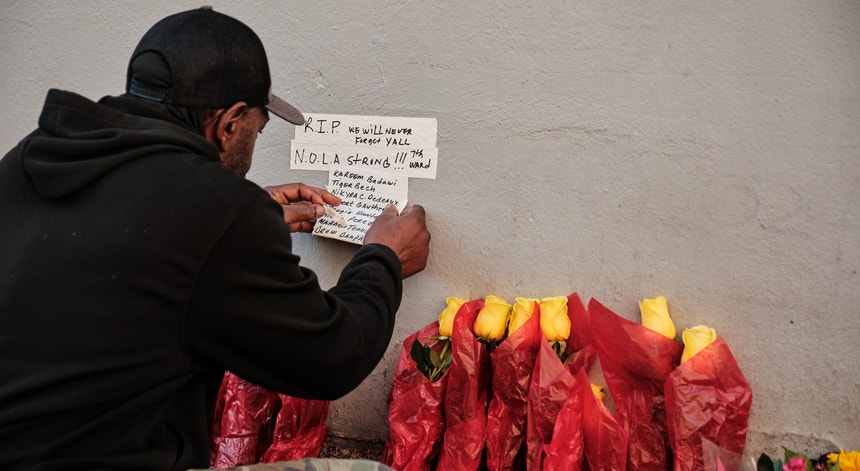 R.I.P. WE WILL NEVER
Forget YALL
N.O.L.A STRONG !!! 7th
WARD
KAREEM BADAWI
TIGER BECH
NIKYRA C. DEDEAUX
Gauthr
PEREZ
MATTHEW TENE
DREW DAUPH